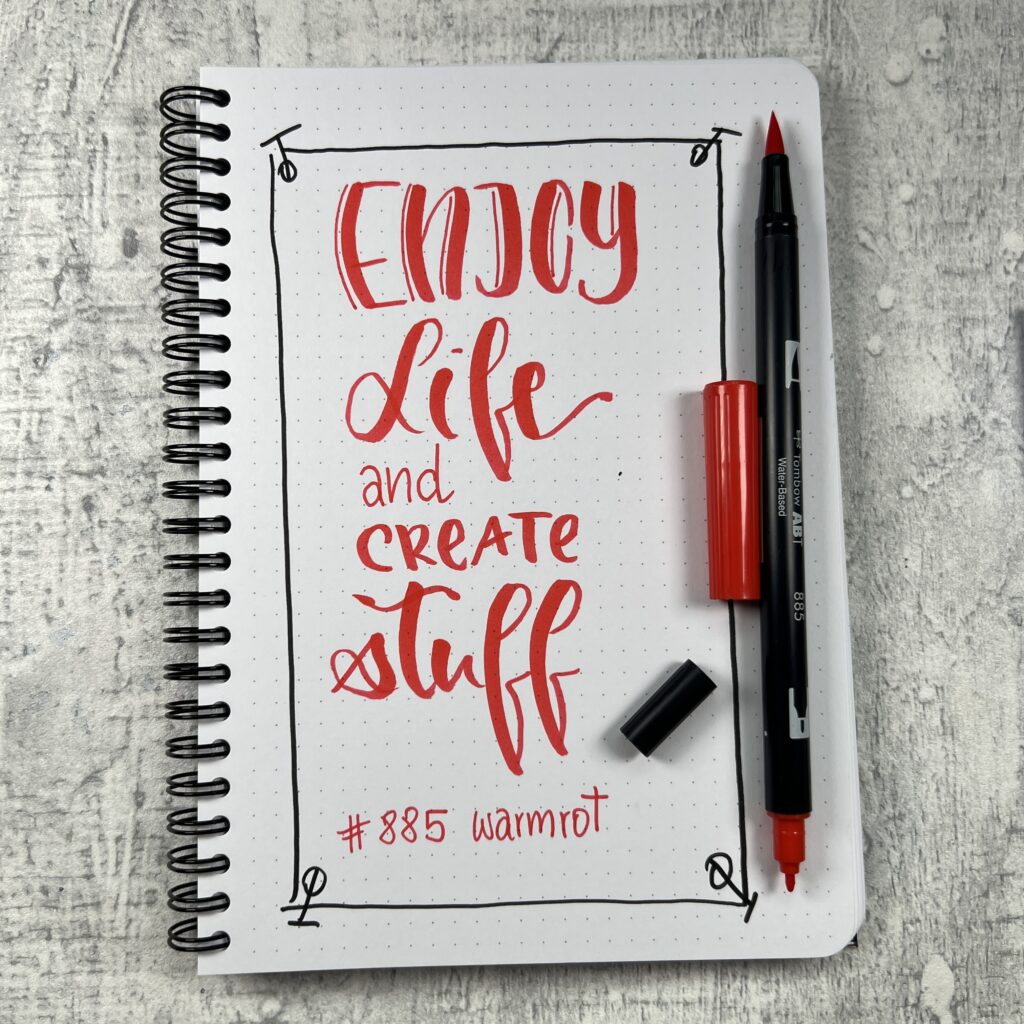 ENJOY
Life
and
CREATE
stuff
#885 warmrot
Tombow ABT 885
Water-Based